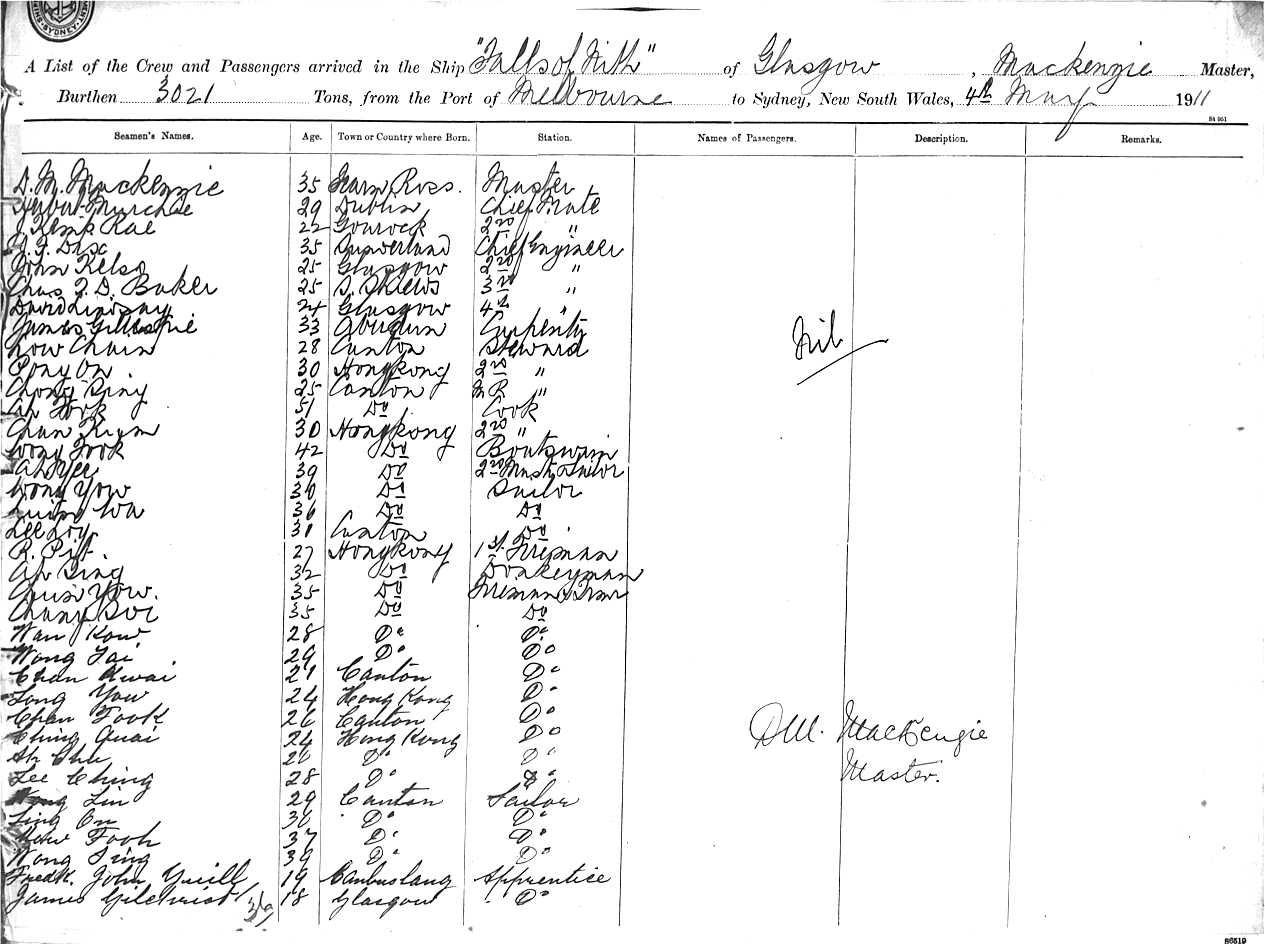 SYDNEY
A List of the Crew and Passengers arrived in the Ship "Falls of Nith" of Glasgow, Mackenzie Master,
Burthen 3021 Tons, from the Port of Melbourne to Sydney, New South Wales, 4th May 1911
84 951
Seamen's Names. Age. Town or Country where Born. Station. Names of Passengers. Description. Remarks.
D. M. Mackenzie 35 Fearn Ross. Master
Herbert Murchie 29 Dublin Chief Mate
J Kemp Rae 22 Gourock 2nd "
35 Sunderland Chief Engineer
John Kelso 25 Glasgow 2nd "
Chas F. D. Baker 25 S. Shields 3rd "
David Lindsay 24 Glasgow 4th "
James Gillespie 33 Aberdeen Carpenter
Low Chain 28 Canton Steward
Nil
Pong On. 30 Hongkong 2nd "
Chong Sing 25 Canton M R "
Ah Fook 51 Do Cook
Chan 30 Hongkong 2nd "
Wong Fook 42 Do Boatswain
Ah Yee 39 Do 2nd Mast Sailor
Wong Yow 30 Do Sailor
36 Do Do
Lee Loy. 31 Canton Do
R. Pit. 27 Hongkong 1st. Fireman
Ah Sing 32 Do Donkeyman
Yow. 35 Do Fireman & Trmr
Chang 35 Do Do
Wan Kow 28 Do Do
Wong Tai 29 Do Do
Chan Kwai 21 Canton Do
Long You 24 Hong Kong Do
Chan Fook 26 Canton Do
Ching Quai 24 Hong Kong Do
DM. MacKenzie
Ah Chu 26 Do Do
Lee Ching 28 Do Do
Master.
Wong Lin 29 Canton Sailor
Ling On 36 Do Do
Fooh 37 Do Do
Wong Sing 39 Do Do
Fredk. John Yuill 19 Cambuslang Apprentice
James Gilchrist 18 Glasgow Do
86519